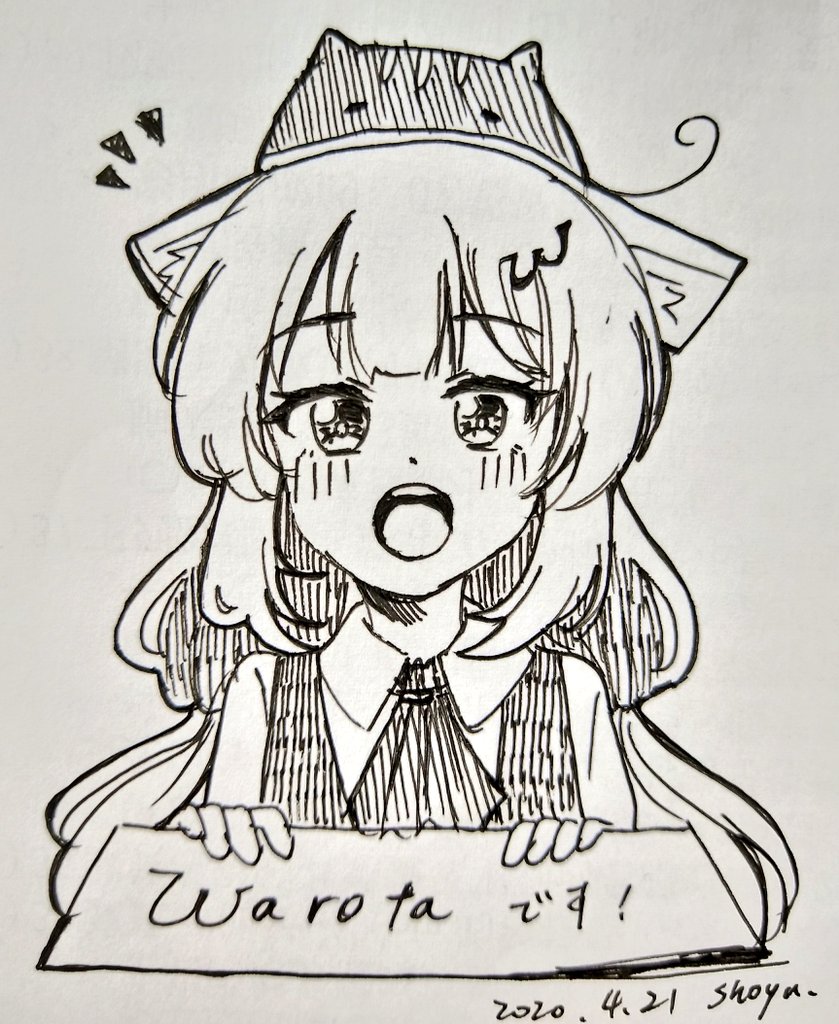 Warota です!
2020.4.21 shoyu.